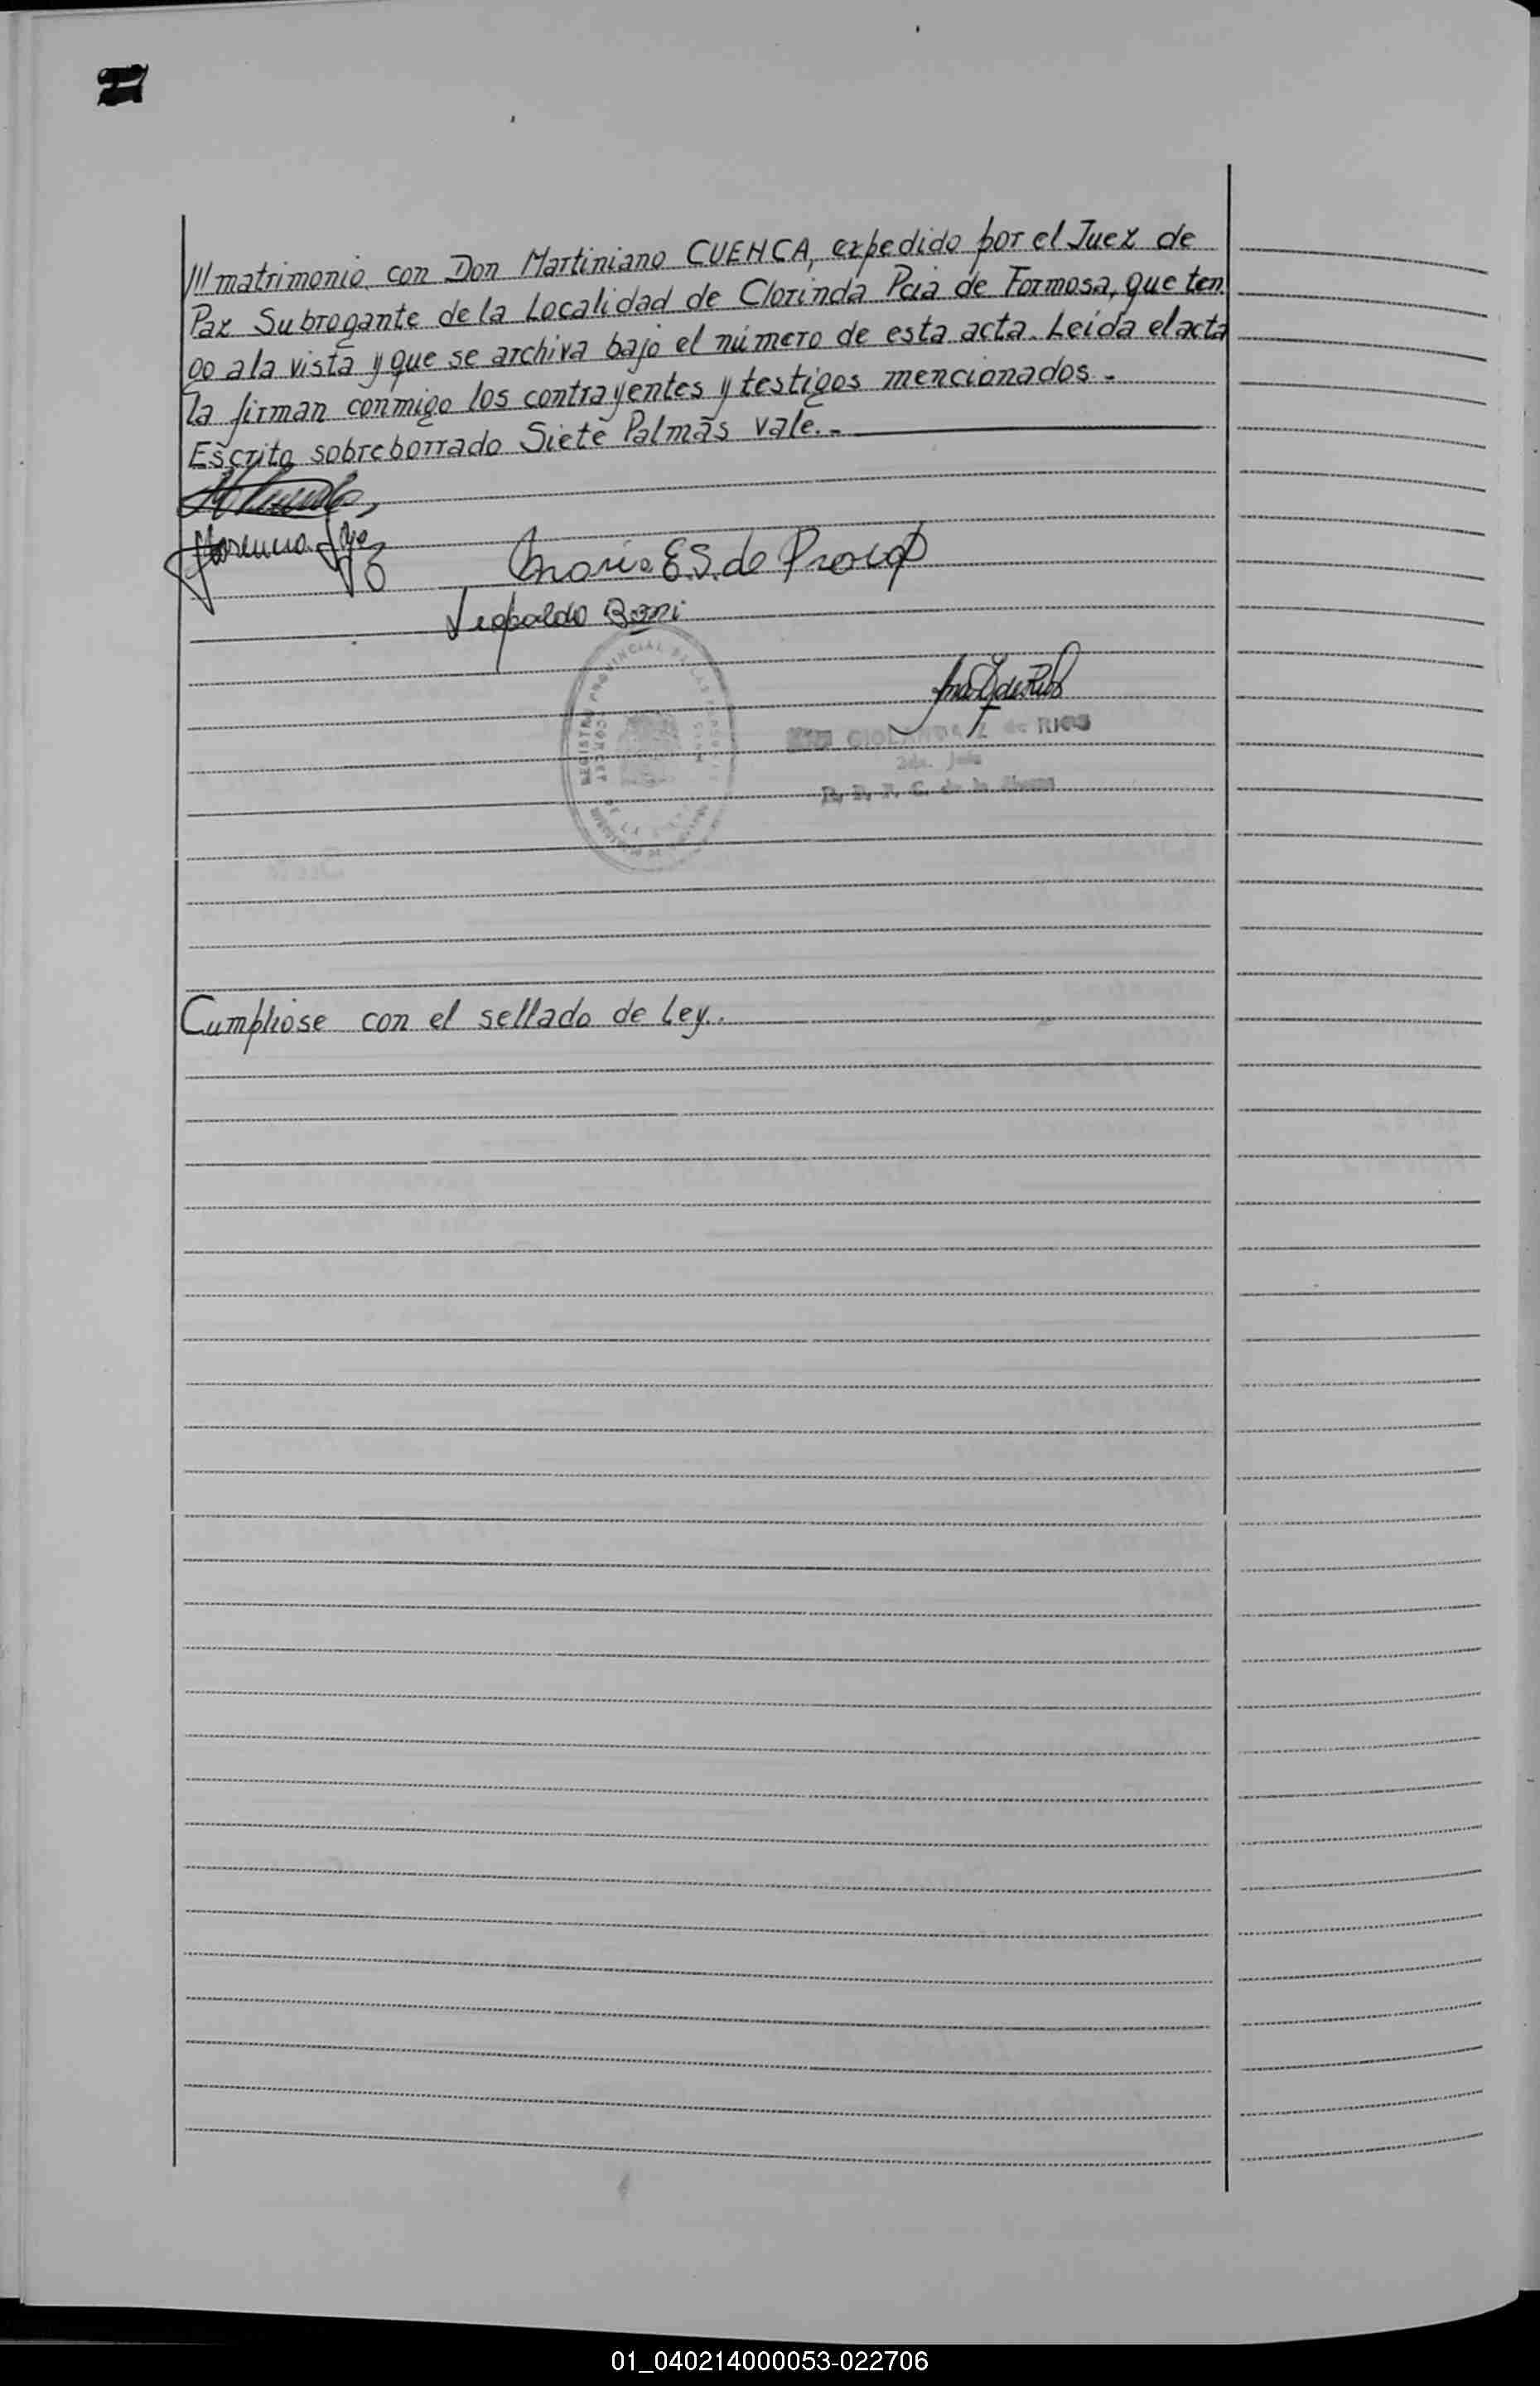 /// matrimonio con Don Martiniano CUENCA, expedido por el Juez de
Paz Subrogante de la Localidad de Clorinda Pcia de Formosa, que ten
go a la vista y que se archiva bajo el número de esta acta. Leída el acta
la firman conmigo los contrayentes y testigos mencionados.-
Escrito sobreborrado Siete Palmas vale.-
Maria E.S. de
Leopoldo
REGISTRO PROVINCIAL DE LAS PERSONAS
de RIOS
2da. Jefa
R. P. P. C. de la
Cumpliose con el sellado de Ley.
01_040214000053-022706